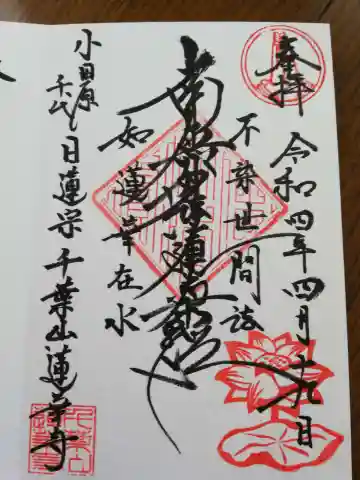 奉拝
令和四年四月十九日
不染世間法
南無妙法蓮華経
如蓮華在水
小田原
千代
日蓮宗千葉山蓮華寺